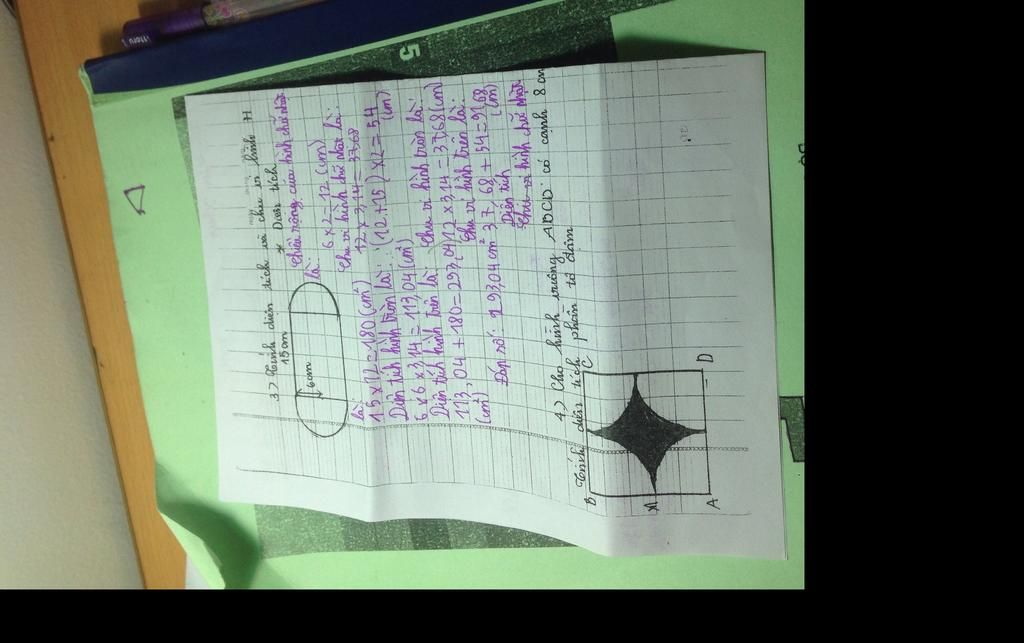 3) Tính diện tích và chu vi hình H
15 cm
* Diện tích
6cm
Chiều rộng của hình chữ nhật
là:
6 x 2 = 12 (cm)
Chu vi hình chữ nhật là:
12 x 3,14 = 37,68
là:
15 x 12 = 180 (cm²)
(12 + 15) x 2 = 54
(cm)
Diện tích hình tròn là:
6 x 6 x 3,14 = 113,04 (cm²)
Chu vi hình tròn là:
Diện tích hình trên là
12 x 3,14 = 37,68 (cm)
113,04 + 180 = 293,04
(cm²)
Chu vi hình trên là:
37,68 + 54 = 91,68
(cm)
Đáp số: 293,04 cm²
Diện tích
Chu vi hình chữ nhật
4) Cho hình vuông ABCD có cạnh 8 cm
Tính diện tích phần tô đậm
B
C
M
A
D
5